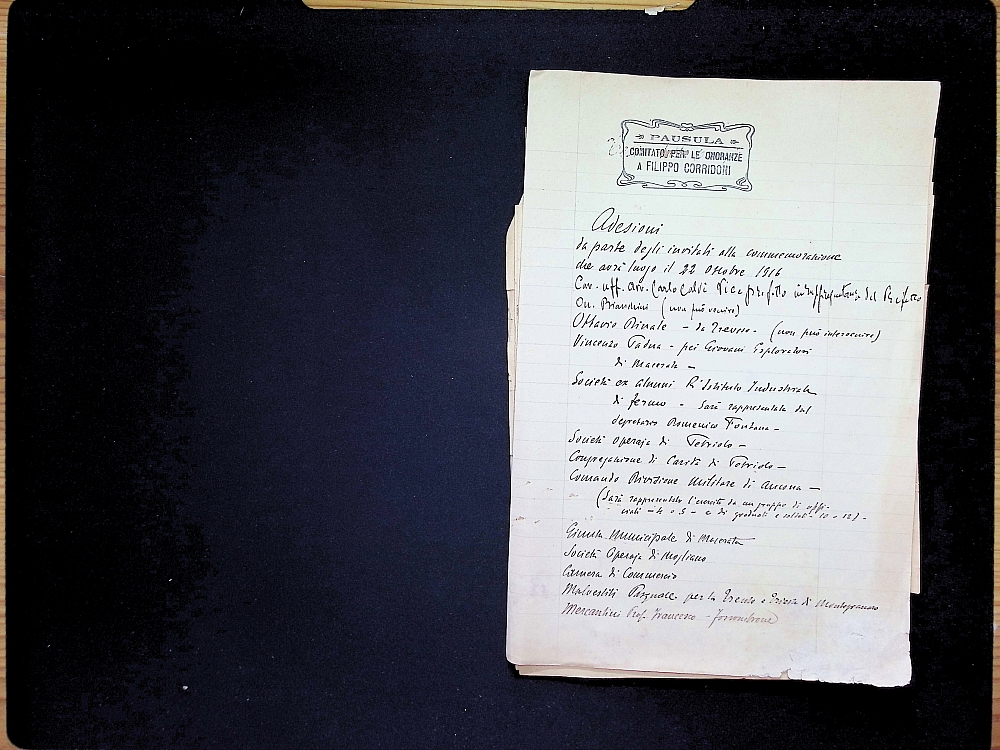 PAUSULA
COMITATO PER LE ONORANZE
A FILIPPO CORRIDONI
Adesioni
da parte degli invitati alla commemorazione
che avrà luogo il 22 Ottobre 1916
Cav. uff. avv. Carlo Calvi Vice prefetto in rappresentanza del Prefetto
On. Bianchini (non può venire)
Ottavio Dinale - da Treviso - (non può intervenire)
Vincenzo Padua - pei Giovani Esploratori
di Macerata -
Società ex alunni R. Istituto Industriale
di Fermo - Sarà rappresentata dal
segretario Romenico Fontana -
Società Operaja di Petriolo -
Congregazione di Carità di Petriolo -
Comando Divisione Militare di Ancona -
(Sarà rappresentato l'esercito da un gruppo di uffi-
ciali - 4 o 5 - e di graduati e soldati 10 o 12) -
Giunta Municipale di Macerata
Società Operaja di Mogliano
Camera di Commercio
Malvestiti Pasquale per la Trento e Trieste di Montegranaro
Mercantini Prof. Francesco - Fossombrone